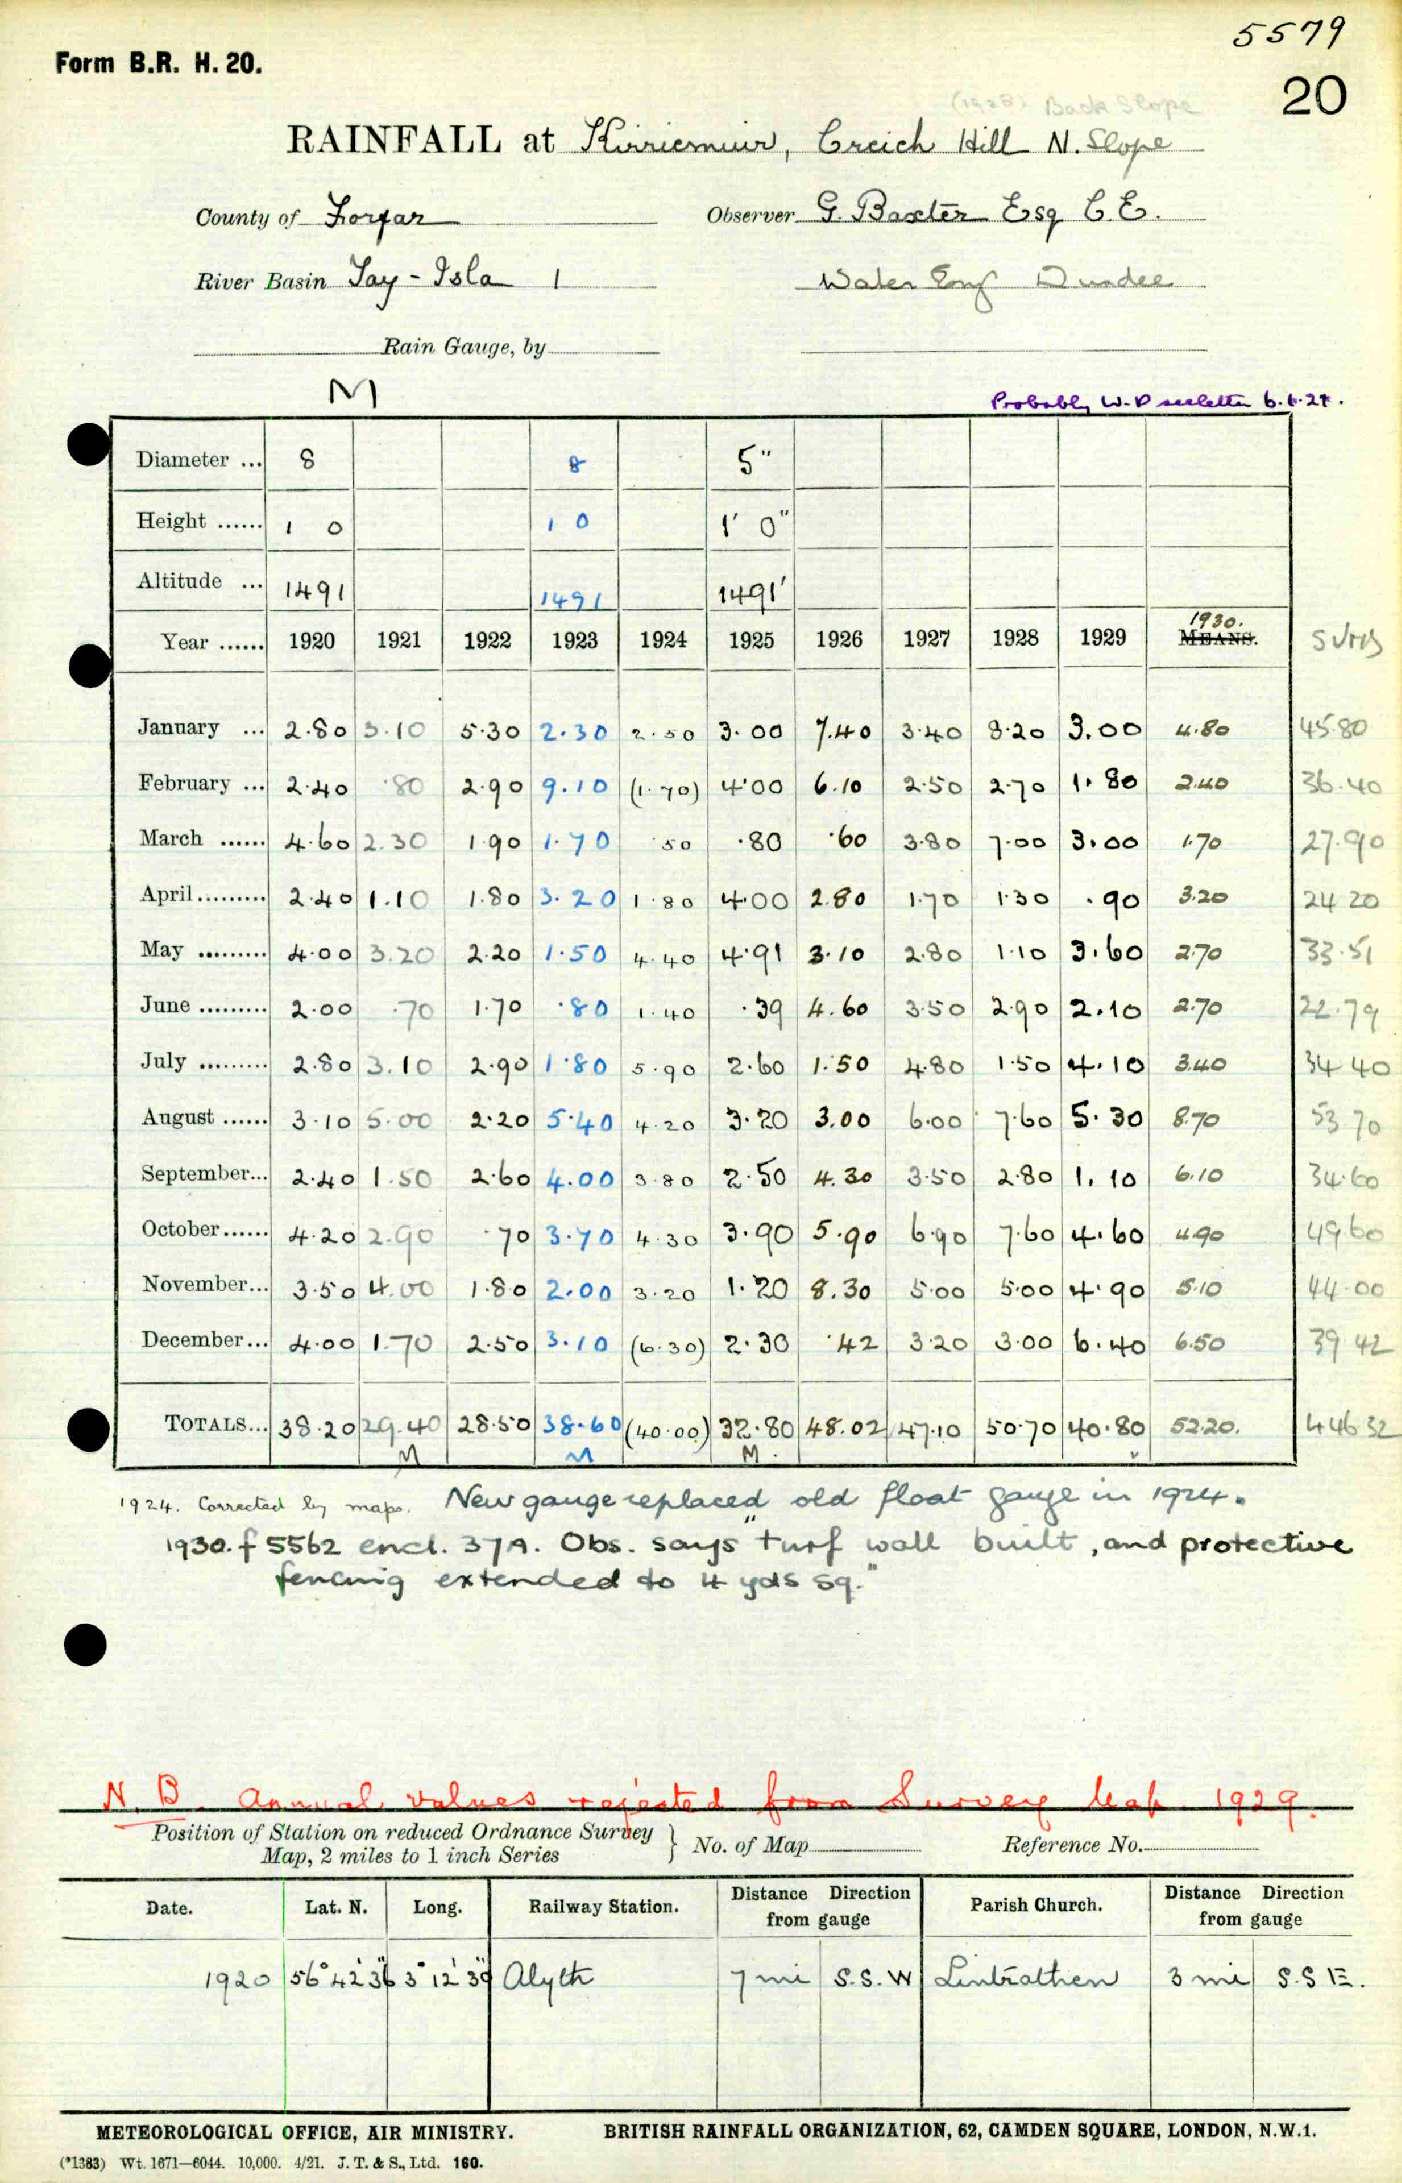 5579
Form B.R. H. 20.
20
(1928) Back Slope
RAINFALL at Kirriemuir, Creich Hill N. Slope
County of Forfar Observer G. Baxter Esq C.E.
River Basin Tay - Isla 1 Water Eng Dundee
Rain Gauge, by
M
Probably W.D see letter 6.6.27.
Diameter ... 8 8 5"
Height ...... 1 0 1 0 1' 0"
Altitude ... 1491 1491 1491'
Year ...... 1920 1921 1922 1923 1924 1925 1926 1927 1928 1929 1930. MEANS. SUMS
January ... 2.80 3.10 5.30 2.30 2.50 3.00 7.40 3.40 8.20 3.00 4.80 45.80
February ... 2.40 .80 2.90 9.10 (1.70) 4.00 6.10 2.50 2.70 1.80 2.40 36.40
March ...... 4.60 2.30 1.90 1.70 .50 .80 .60 3.80 7.00 3.00 1.70 27.90
April ......... 2.40 1.10 1.80 3.20 1.80 4.00 2.80 1.70 1.30 .90 3.20 24 20
May ......... 4.00 3.20 2.20 1.50 4.40 4.91 3.10 2.80 1.10 3.60 2.70 33.51
June ......... 2.00 .70 1.70 .80 1.40 .39 4.60 3.50 2.90 2.10 2.70 22.79
July ......... 2.80 3.10 2.90 1.80 5.90 2.60 1.50 4.80 1.50 4.10 3.40 34 40
August ...... 3.10 5.00 2.20 5.40 4.20 3.20 3.00 6.00 7.60 5.30 8.70 53 70
September... 2.40 1.50 2.60 4.00 3.80 2.50 4.30 3.50 2.80 1.10 6.10 34.60
October ...... 4.20 2.90 .70 3.70 4.30 3.90 5.90 6.90 7.60 4.60 4.90 49.60
November... 3.50 4.00 1.80 2.00 3.20 1.20 8.30 5.00 5.00 4.90 5.10 44.00
December... 4.00 1.70 2.50 3.10 (6.30) 2.30 .42 3.20 3.00 6.40 6.50 39 42
TOTALS... 38.20 29.40 28.50 38.60 (40.00) 32.80 48.02 47.10 50.70 40.80 52.20. 446 32
M M M.
1924. Corrected by maps. New gauge replaced old float gauge in 1924.
1930. f 5562 encl. 37A. Obs. says "turf wall built, and protective
fencing extended to 4 yds sq."
N.B. Annual values rejected from Survey Map 1929.
Position of Station on reduced Ordnance Survey
Map, 2 miles to 1 inch Series } No. of Map Reference No.
Date. Lat. N. Long. Railway Station. Distance Direction from gauge Parish Church. Distance Direction from gauge
1920 56° 42' 36" 3° 12' 39" Alyth 7 mi S.S.W Lintrathen 3 mi S.S E.
METEOROLOGICAL OFFICE, AIR MINISTRY. BRITISH RAINFALL ORGANIZATION, 62, CAMDEN SQUARE, LONDON, N.W.1.
(*1383) Wt. 1671—6044. 10,000. 4/21. J. T. & S., Ltd. 160.